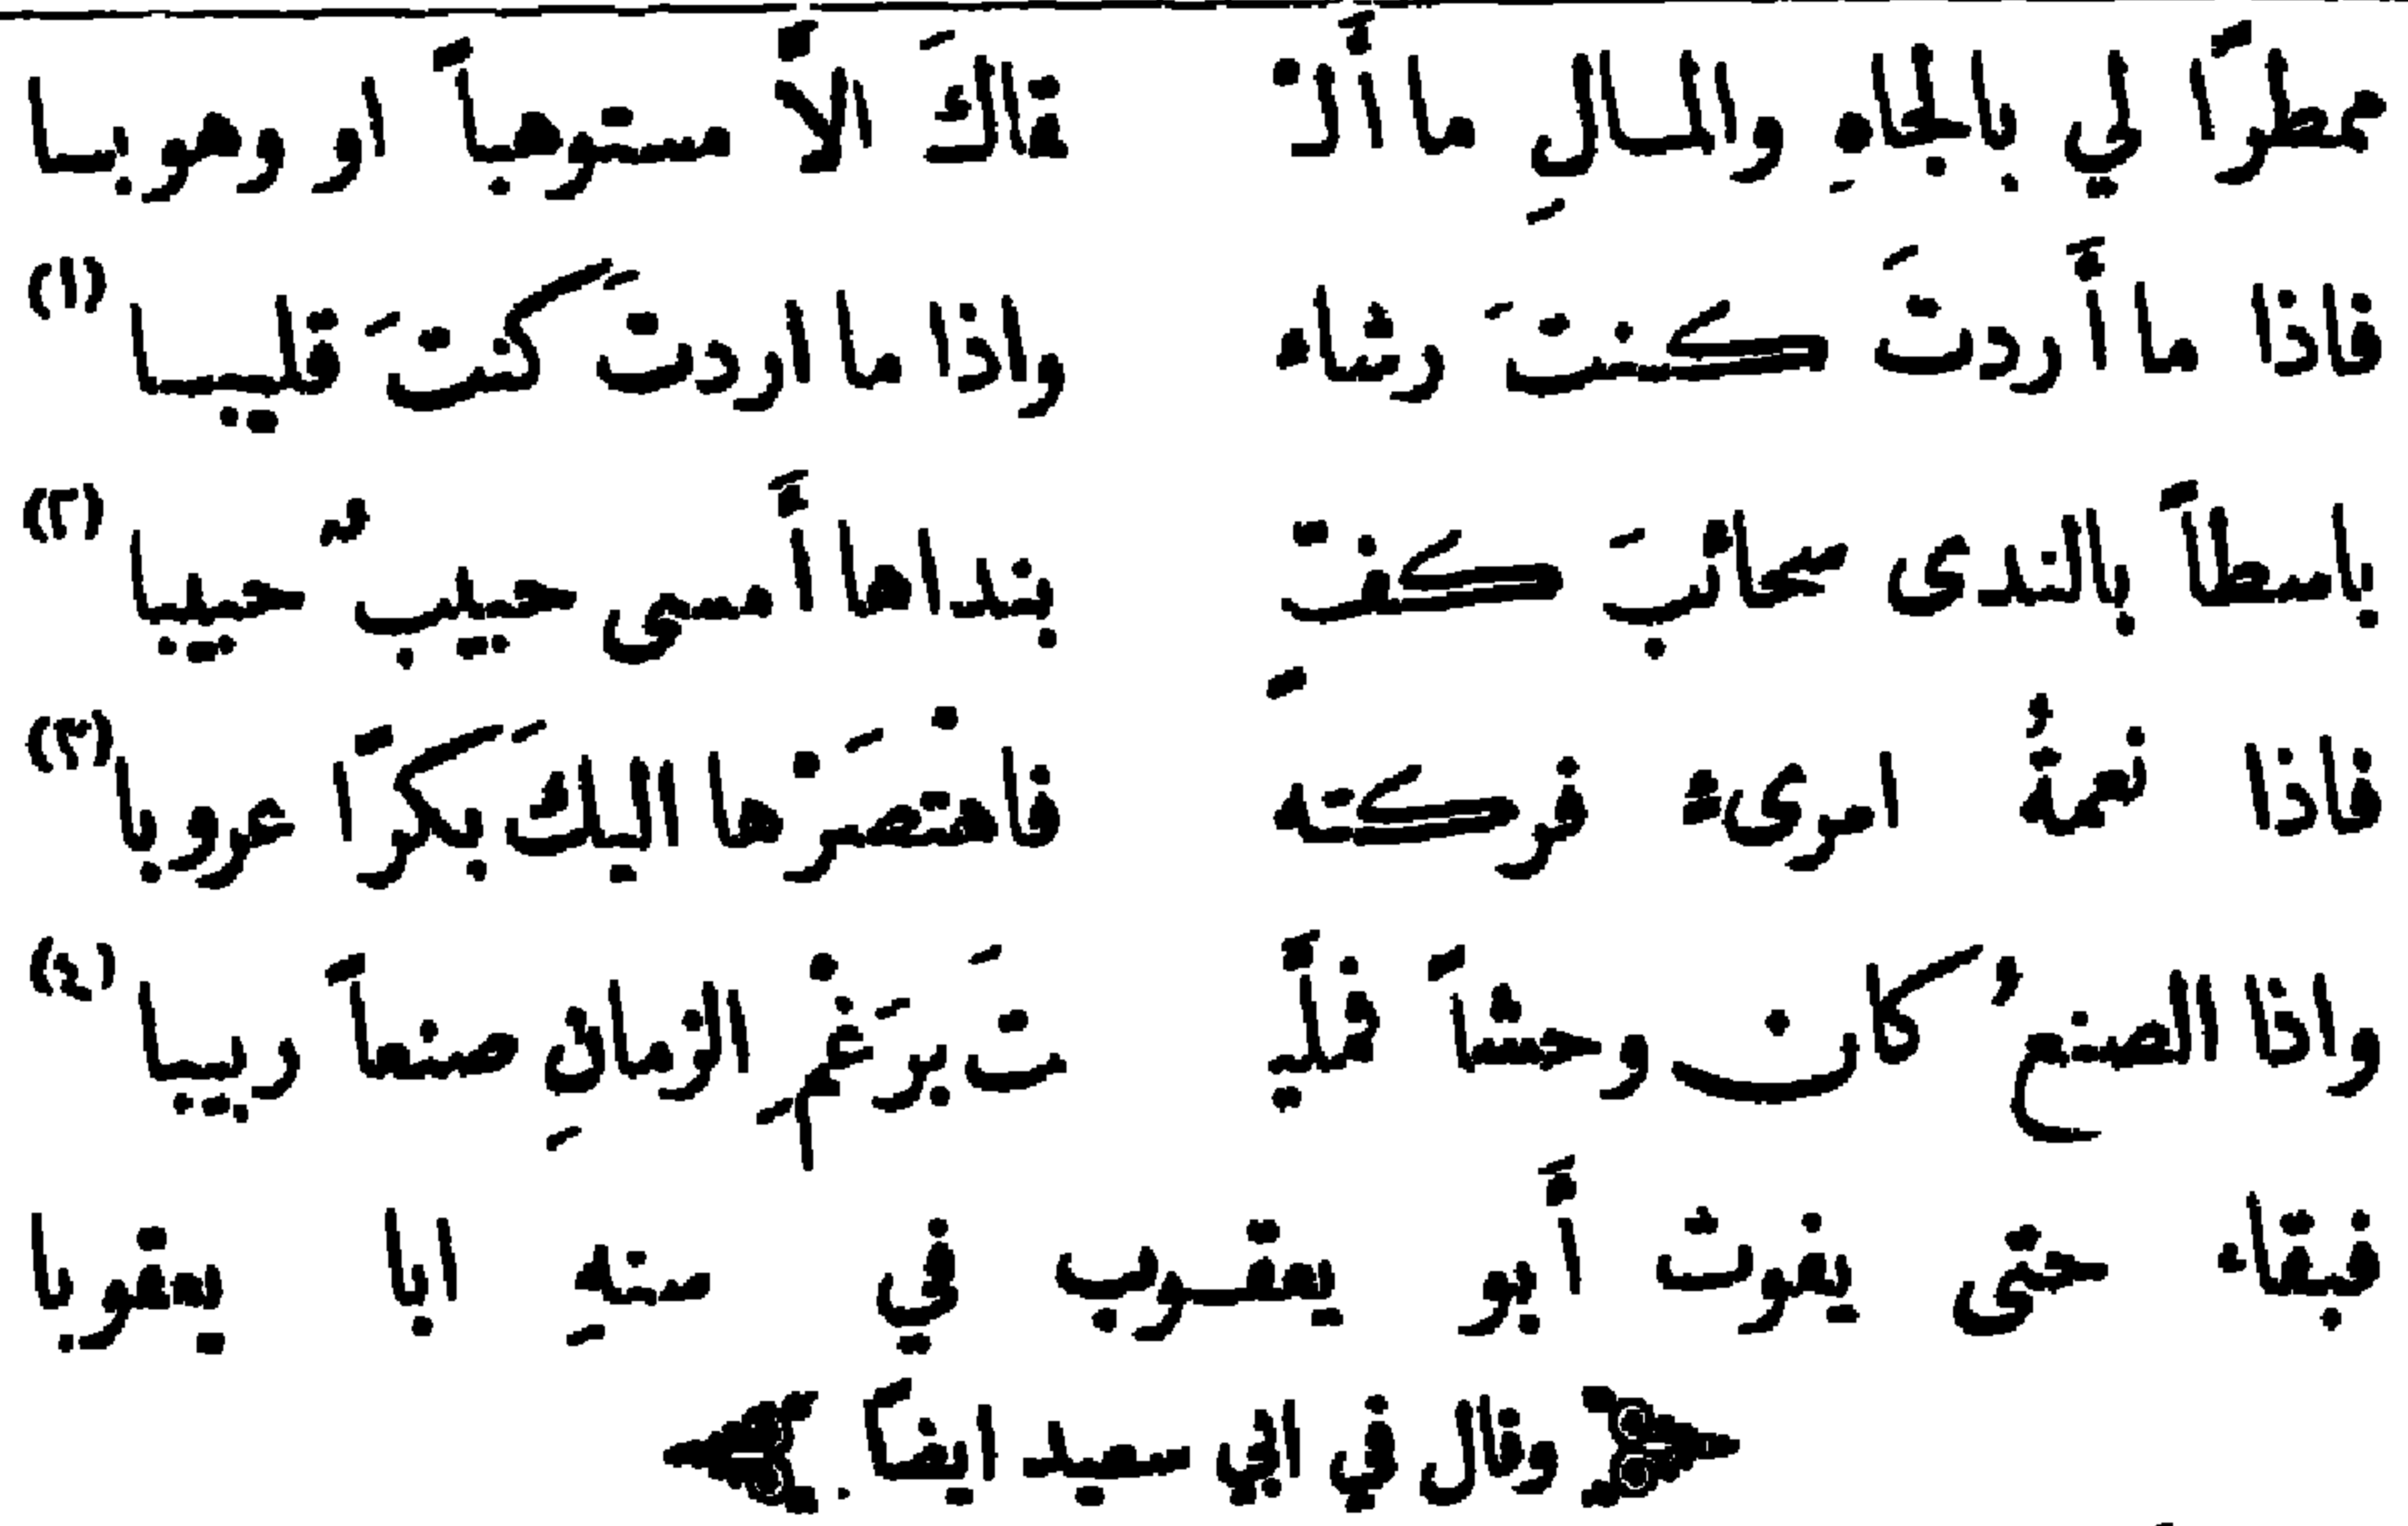 ممطرًا لي بالجاهِ والمالِ ما أَلـ قاكَ الاَّ مستوهباً او وهوبا
فاذا ما أَردتَ كنتَ رشاء واذا ما اردتَ كنتَ قليبا (١)
باسطاً بالندى سحائبَ كفٍّ بنداها أَمسى حبيبٌ حبيبا (٢)
فاذا نعمةُ امرىءٍ فركته فاهتصرْها اليكَ بكرًا عروبا (٣)
واذا الصنعُ كان وحشاً فملّيـ تَ برَغْمِ الزمانِ صنعاً ربيبا (٤)
فبقاء حتى يفوتَ أَبو يعقوب في سنهِ ابا يعقوبا
وقال في ابي سعيد ايضاً